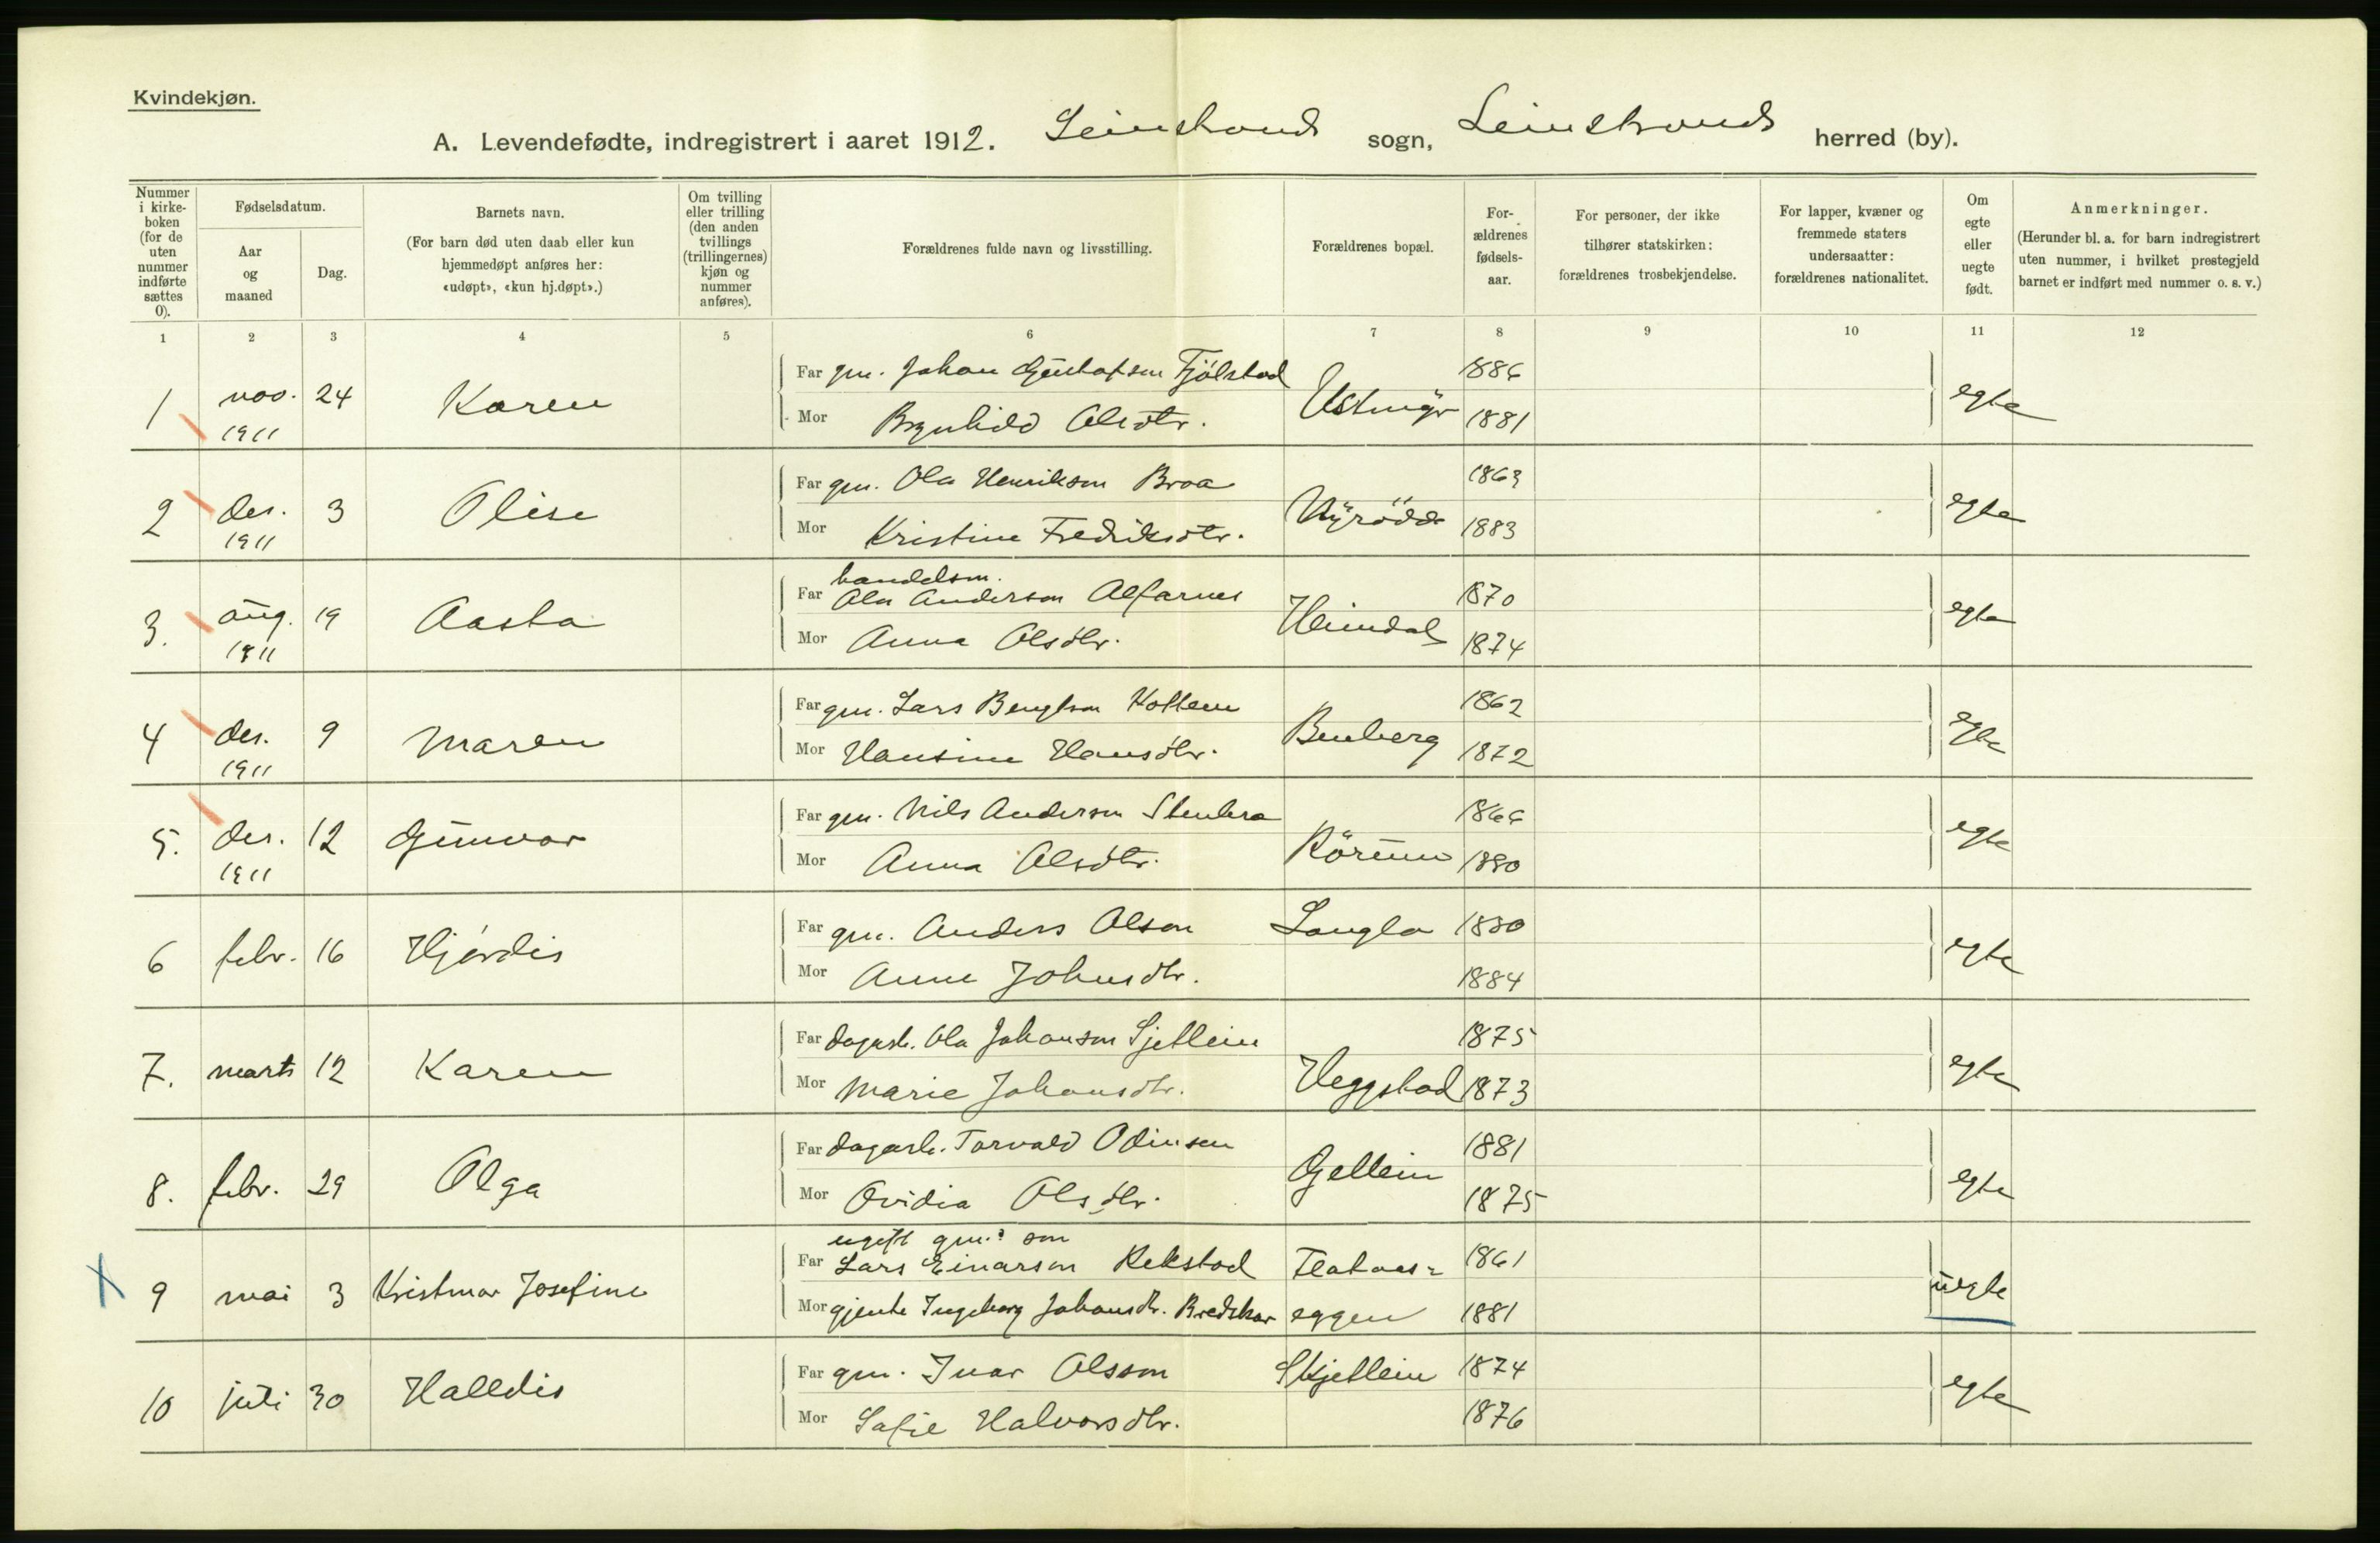 Kvindekjøn.
A. Levendefødte, indregistrert i aaret 1912. Leinstrand sogn, Leinstrand herred (by).
Nummer i kirke-boken (for de uten nummer indførte sættes 0).
Fødselsdatum.
Aar og maaned
Dag.
Barnets navn.
(For barn død uten daab eller kun hjemmedøpt anføres her: «udøpt», «kun hj.døpt».)
Om tvilling eller trilling (den anden tvillings (trillingernes) kjøn og nummer anføres).
Forældrenes fulde navn og livsstilling.
Forældrenes bopæl.
For-ældrenes fødsels-aar.
For personer, der ikke tilhører statskirken: forældrenes trosbekjendelse.
For lapper, kvæner og fremmede staters undersaatter: forældrenes nationalitet.
Om egte eller uegte født.
Anmerkninger.
(Herunder bl. a. for barn indregistrert uten nummer, i hvilket prestegjeld barnet er indført med nummer o. s. v.)
1 2 3 4 5 6 7 8 9 10 11 12
1 nov. 1911 24 Karen
Far gm. Johan Gustafsen Fjölstad 1886
Mor Brynhild Olsdtr. Ustmyr 1881 egte
2 des. 1911 3 Olise
Far gm. Ola Henrikson Broa 1863
Mor Kristine Fredriksdtr. Nyrödde 1883 egte
3. aug. 1911 19 Aasta
Far handelsm. Ola Anderson Alfarnes 1870
Mor Anna Olsdtr. Heimdal 1874 egte
4 des. 1911 9 Maren
Far gm. Lars Bengtson Kottem 1862
Mor Hansine Hansdtr. Benberg 1872 egte
5. des. 1911 12 Gunvor
Far gm. Nils Anderson Stenbra 1866
Mor Anna Olsdtr. 1880 egte
6 febr. 16 Hjördis
Far gm. Anders Olson Langla 1880
Mor Anne Johnsdtr. 1884 egte
7. marts 12 Karen
Far dagarb. Ola Johanson Sjetlein 1875
Mor Marie Johansdtr. Heggstad 1873 egte
8. febr. 29 Olga
Far dagarb. Torvald Odinsen 1881
Mor Ovidia Olsdtr. Gjellein 1875 egte
9 mai 3 Kristmar Josefine
Far ugift gm. son Lars Einarson Rekstad Flataas= 1861
Mor gjente Ingeborg Johansdtr. Bredskar eggen 1881 uegte
10 juli 30 Halldis
Far gm. Ivar Olsson Skjetlein 1874
Mor Sofie Halvorsdtr. 1876 egte